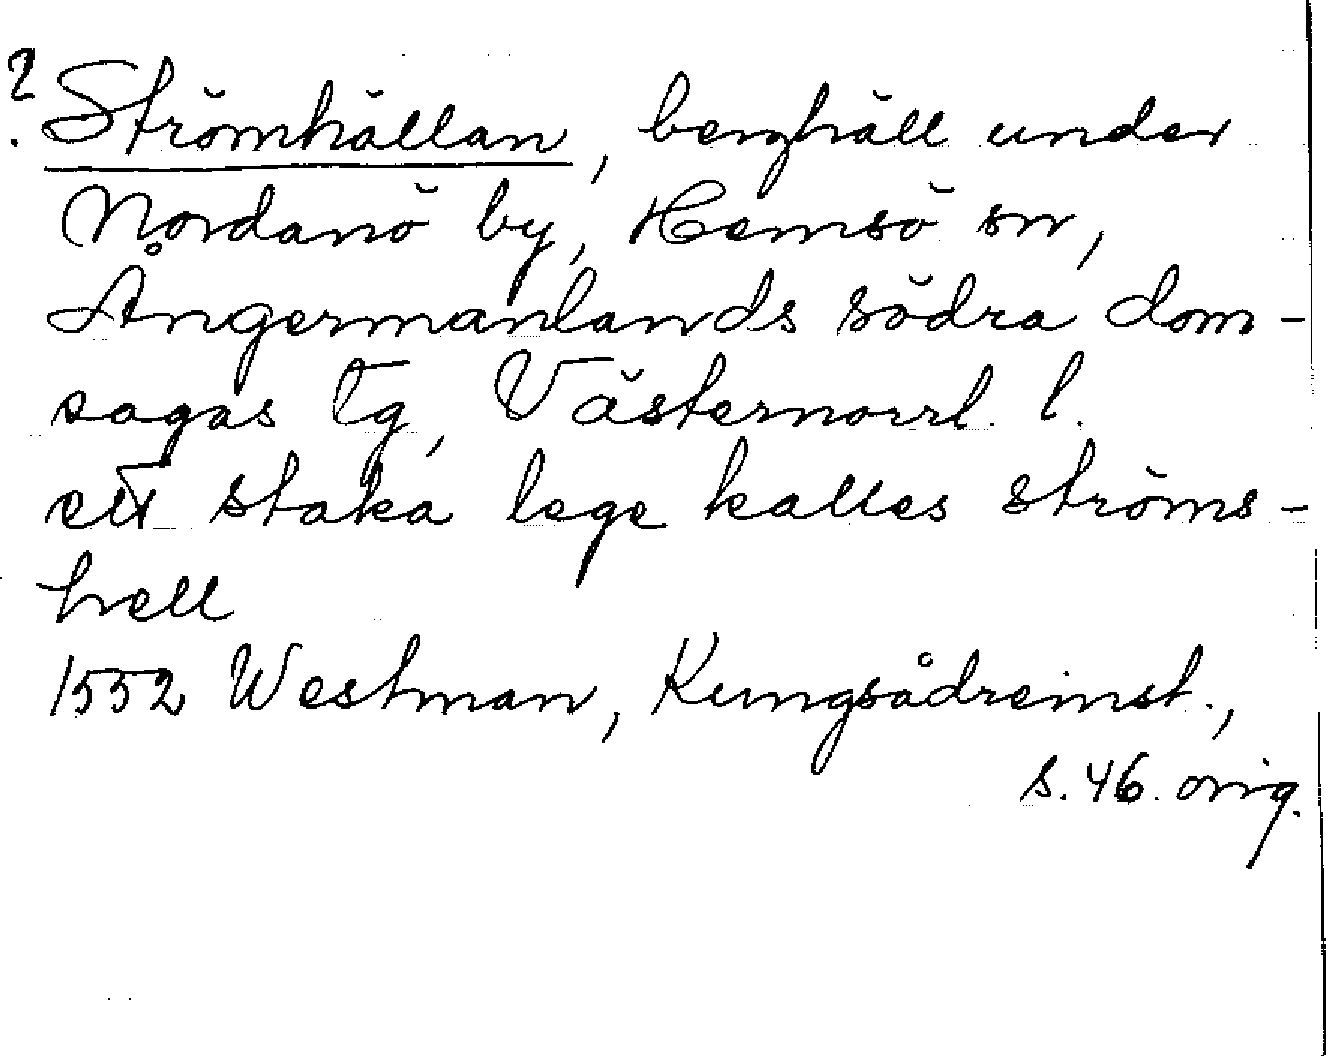 ? Strömhällan, berghäll under
Nordanö by, Hemsö sn,
Ångermanlands södra dom-
sagas tg, Västernorrl. l.
ett staka lege kalles ströms-
hell
1552 Westman, Kungsådreinst.,
s. 46. orig.